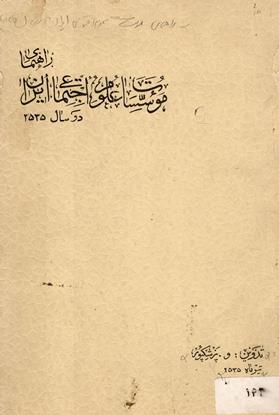 راهنمای
مؤسسات علوم اجتماعی ایران
در سال ۲۵۳۵
تدوین: و. پزشکپور
تیرماه ۲۵۳۵
۱۲۳